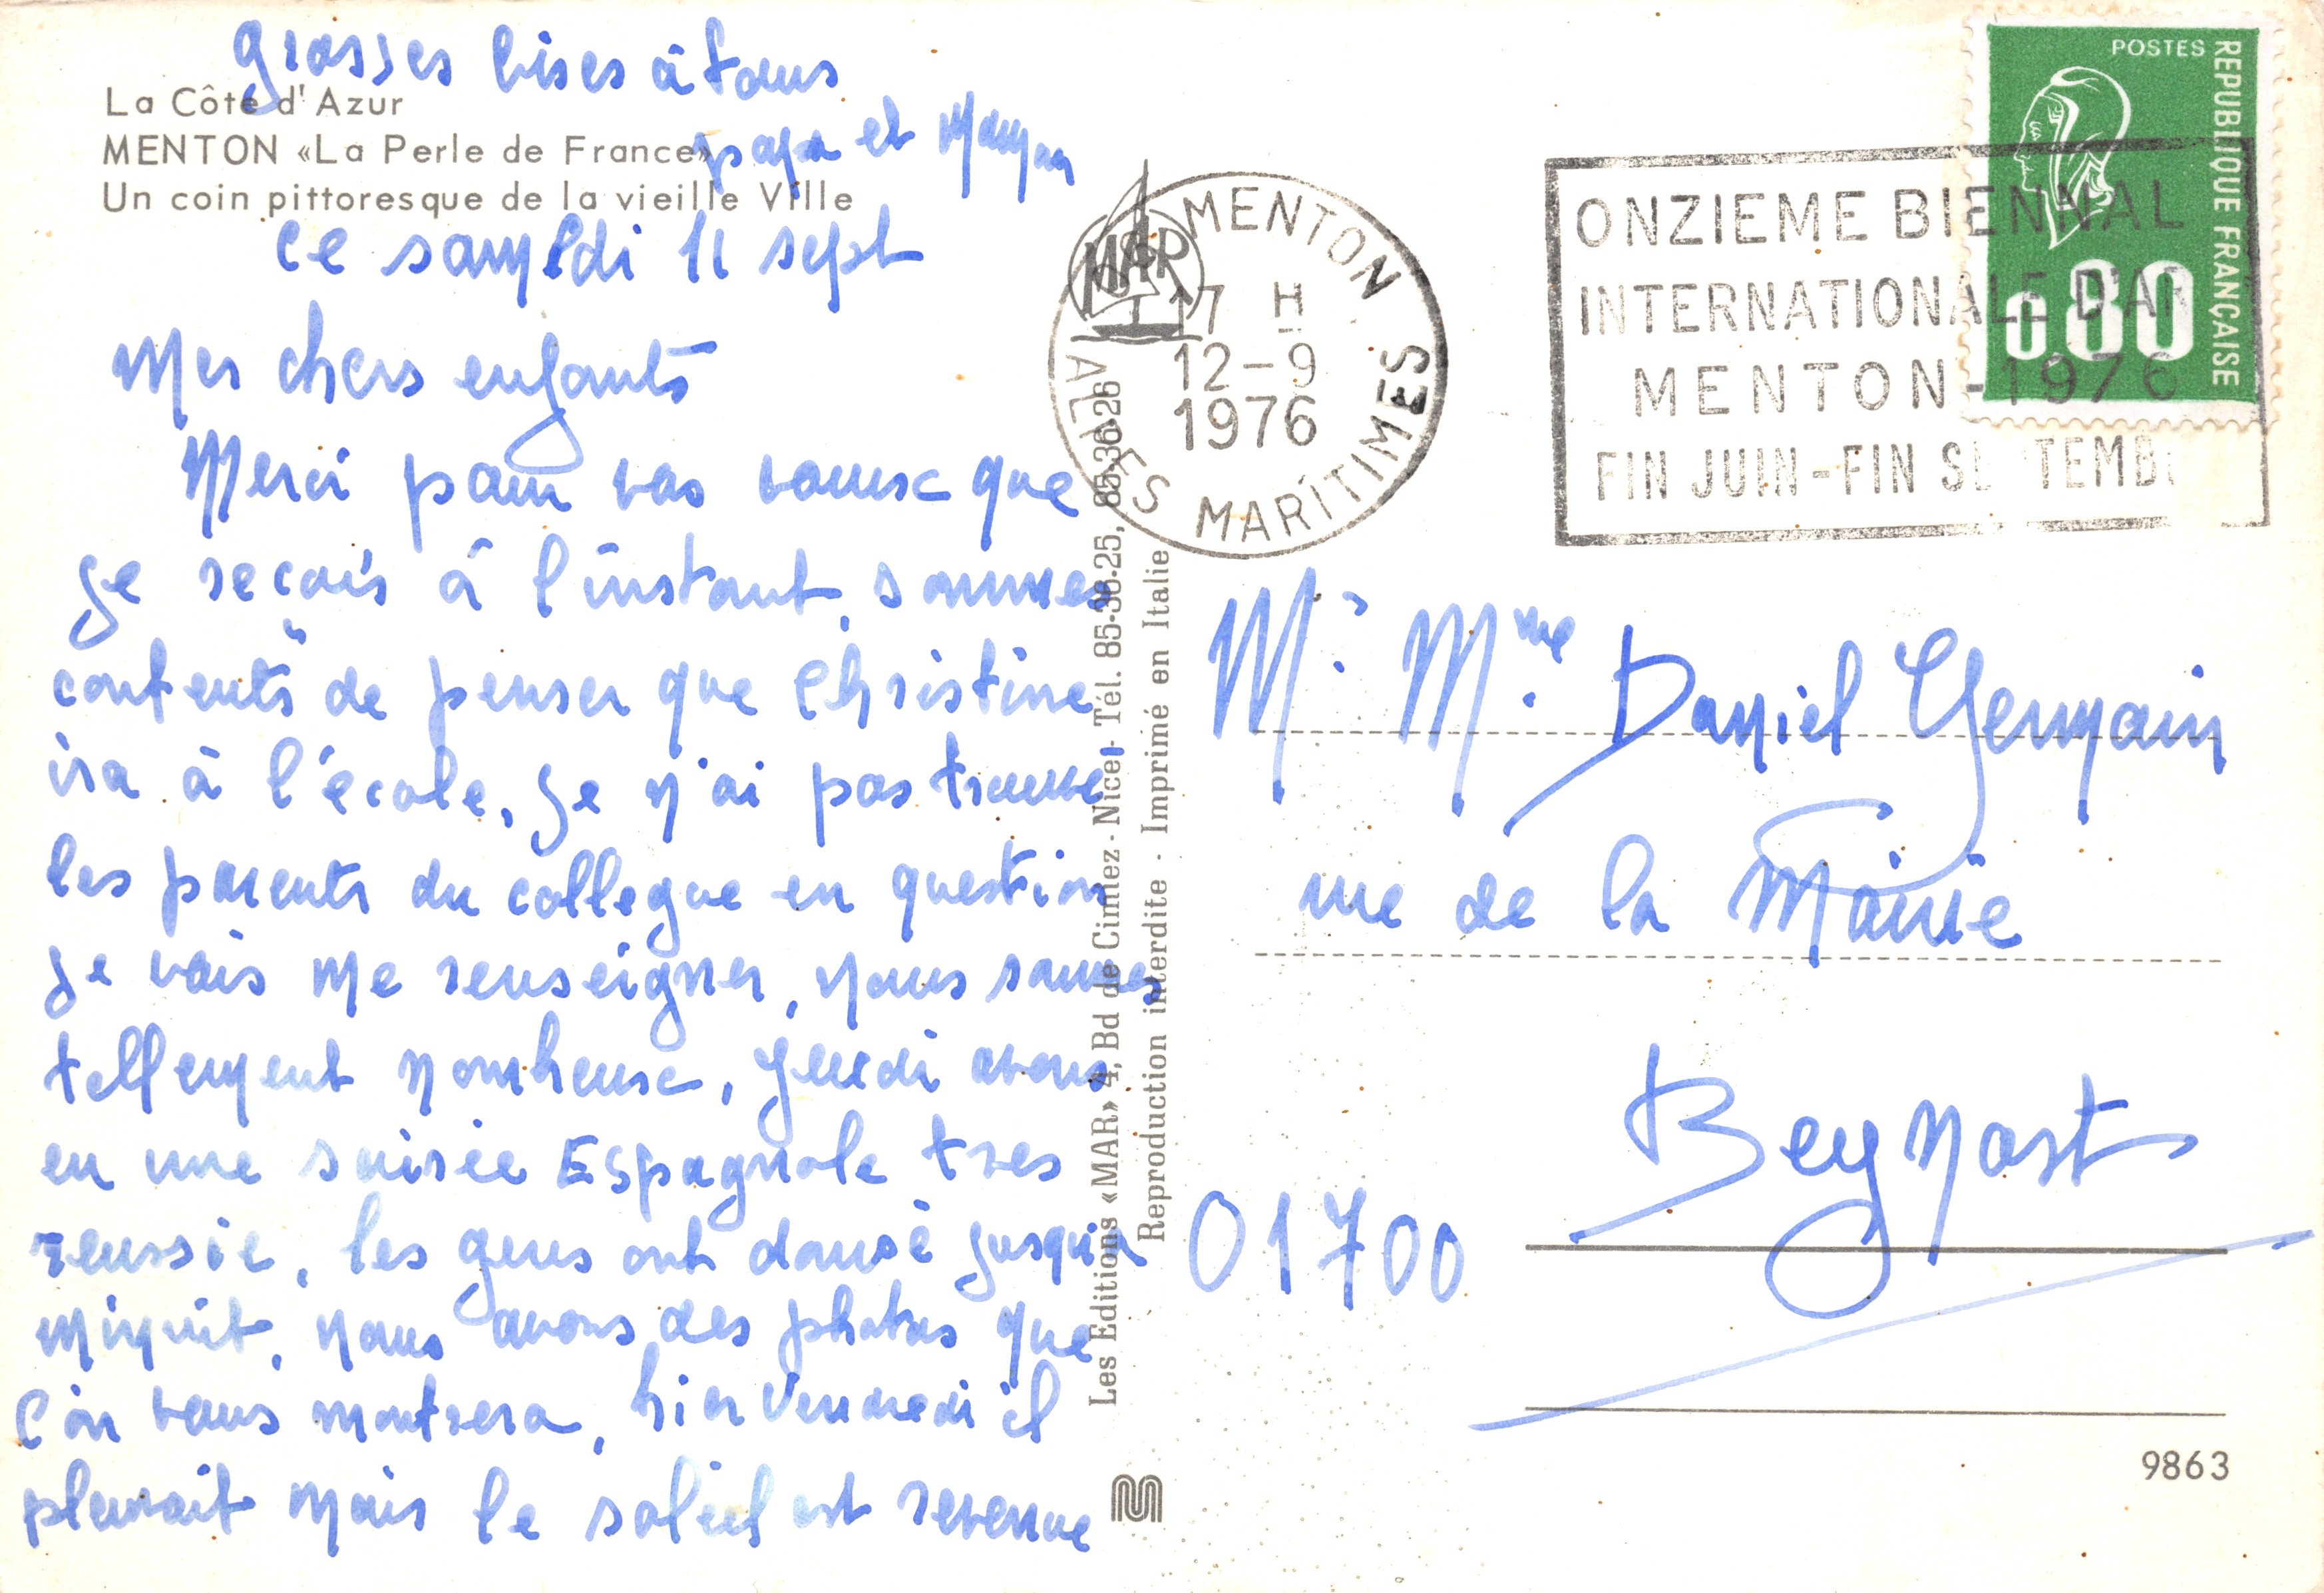 grosses bises à tous
papa et maman
La Côte d'Azur
MENTON «La Perle de France»
Un coin pittoresque de la vieille Ville
ce samedi 11 sept
Mes chers enfants
Merci pour vos voeux que
je reçois à l'instant, sommes
contents de penser que Christine
ira à l'école, je n'ai pas trouve
les parents du collegue en question
je vais me renseigner, nous sommes
tellement nombreux, jeudi avons
eu une soirée Espagnole tres
reussie, les gens ont dansé jusqu'a
minuit, nous avons des photos que
l'on vous montrera, hier Vendredi il
pleuvait mais le soleil est revenue
Les Editions «MAR» 4, Bd de Cimiez - Nice - Tél. 85-36-25, 85-36-26
Reproduction interdite - Imprimé en Italie
MAR
MENTON
17 H
12-9
1976
ALPES MARITIMES
ONZIEME BIENNAL
INTERNATIONALE D'AR
MENTON-1976
FIN JUIN-FIN SE TEMB
POSTES
REPUBLIQUE FRANÇAISE
0,80
Mr. Mme. Daniel Germain
rue de la Mairie
Beynost
01700
9863